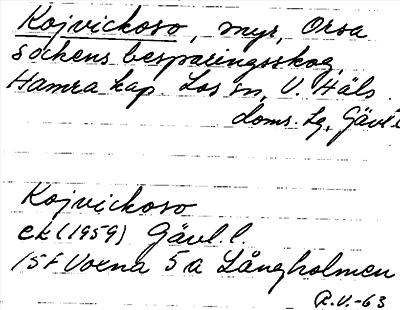 Kojvickoso, myr, Orsa
sockens besparingsskog,
Hamra kap. Los sn, V. Häls.
doms. lg, Gävl. l.
Kojvickoso
ek (1959) Gävl. l.
15F Voxna 5a Långholmen
R.V.-63